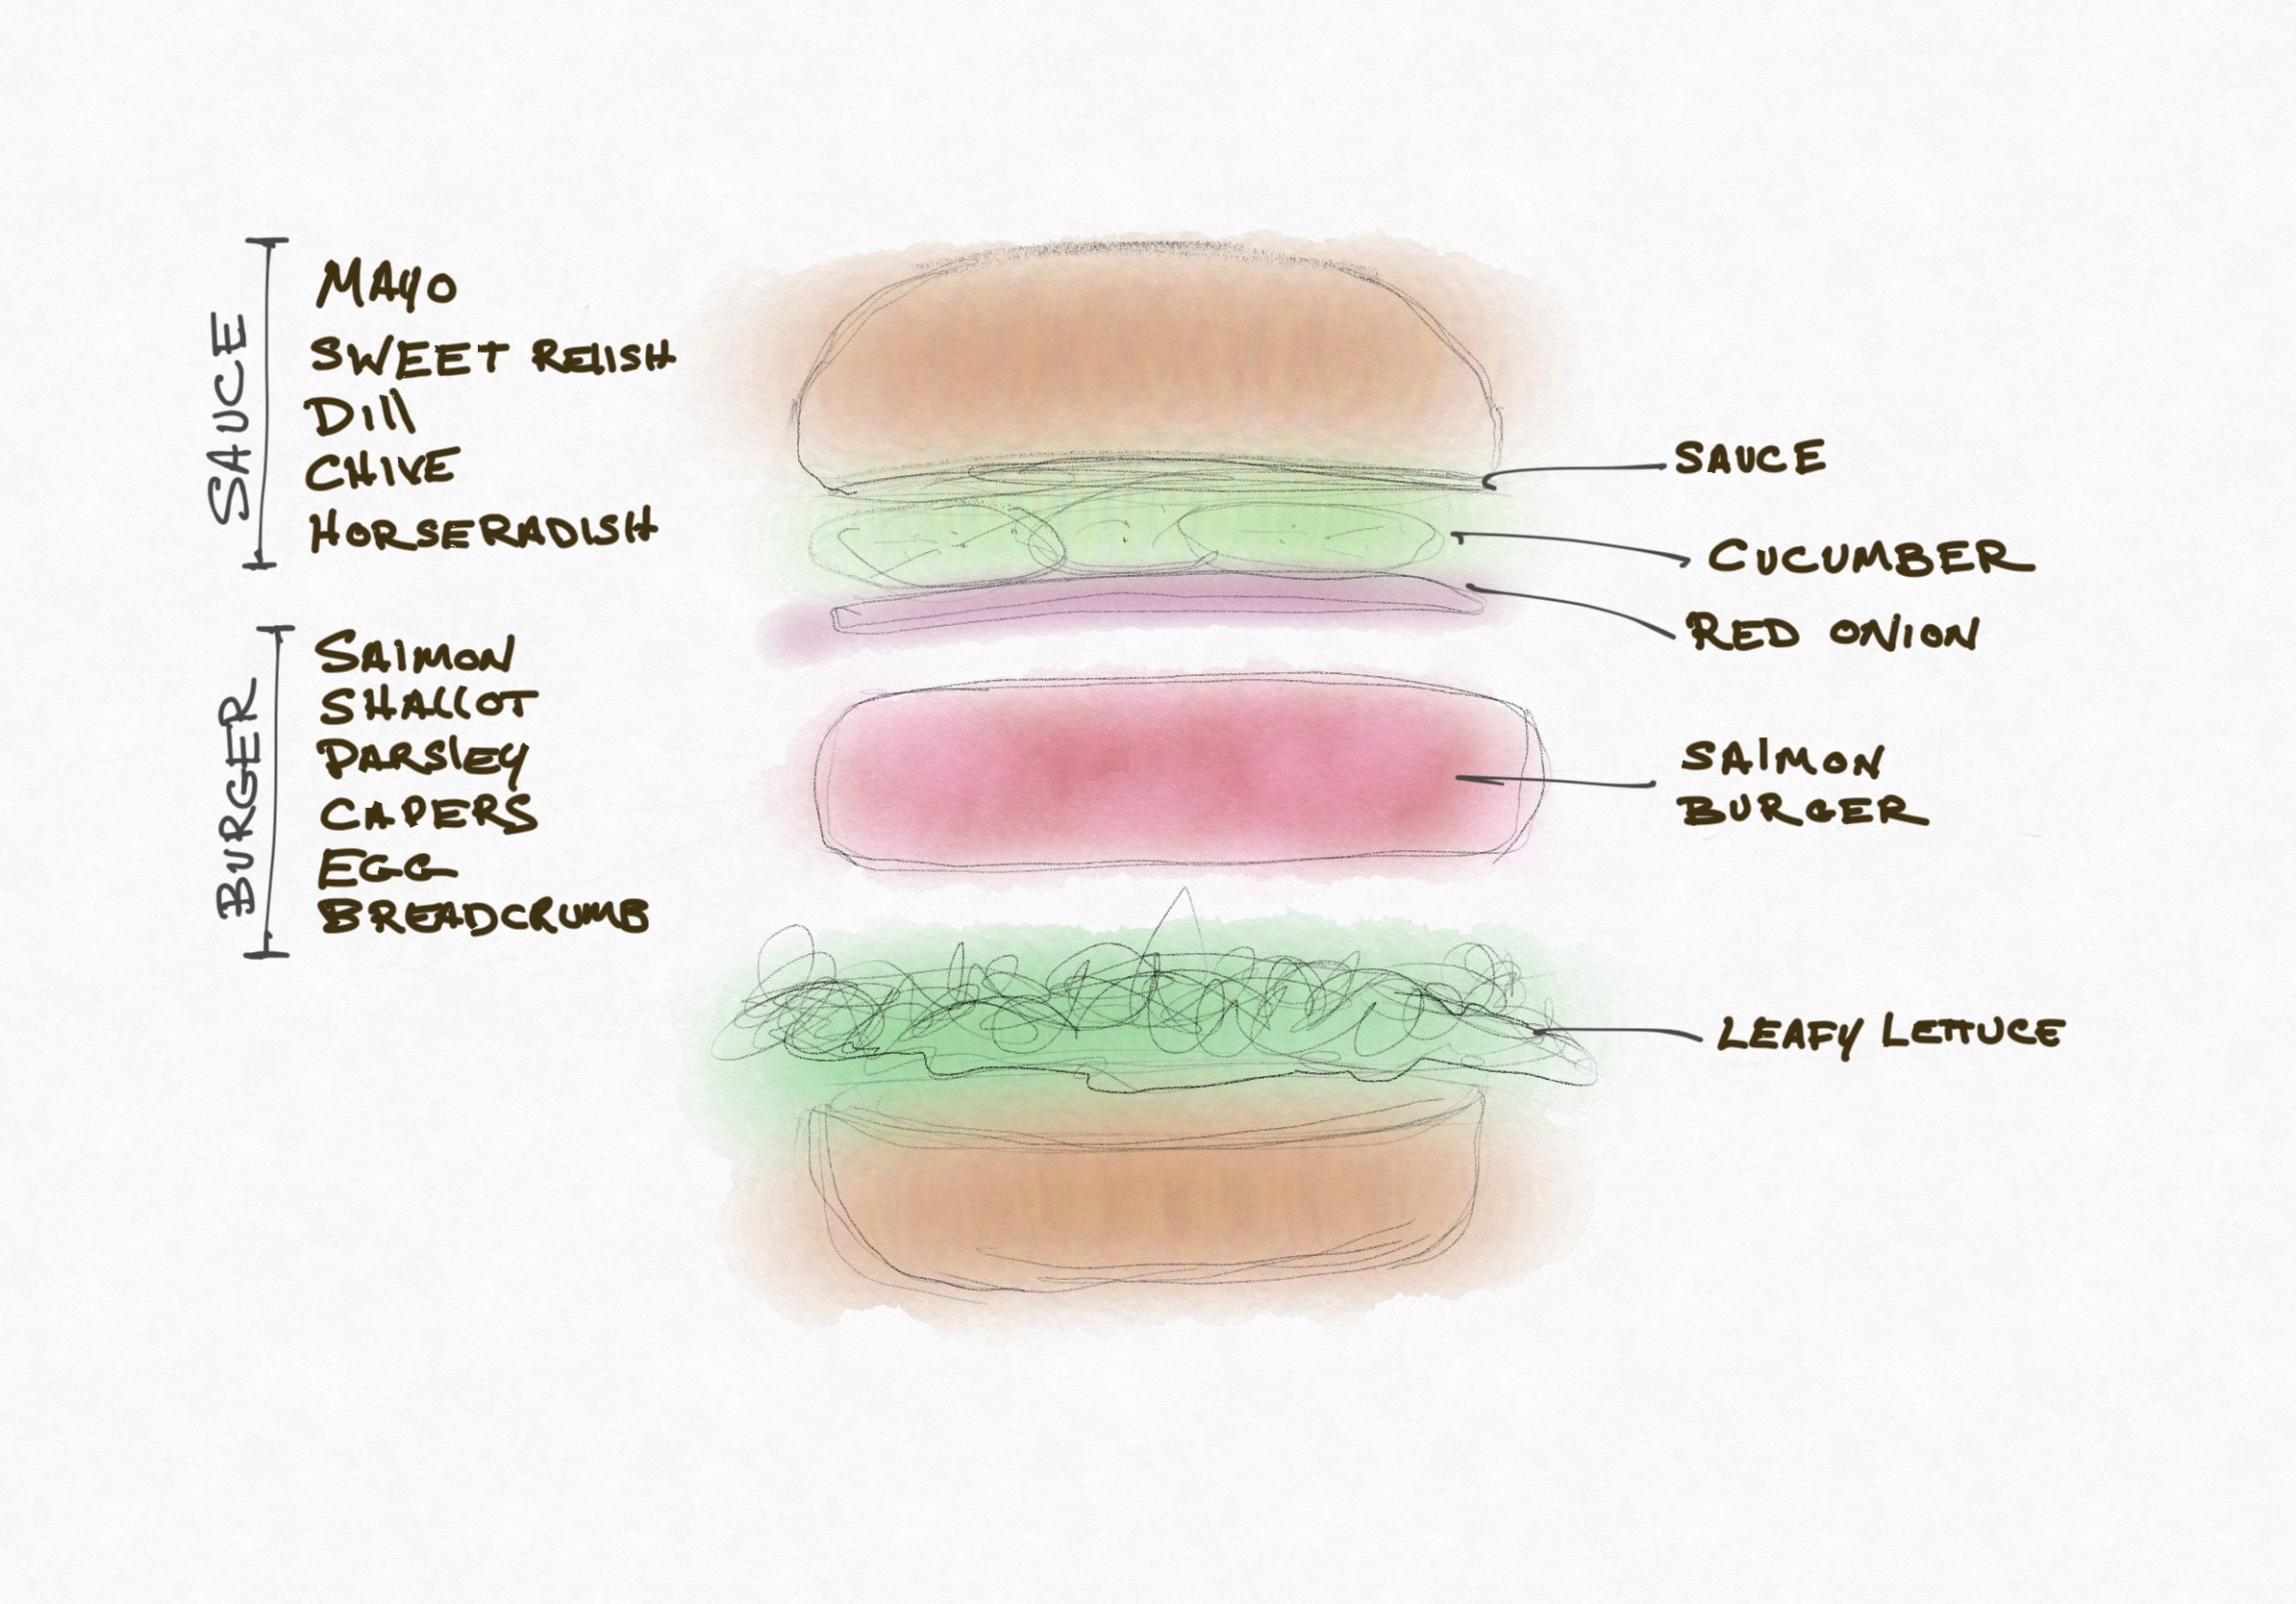 SAUCE
MAYO
SWEET RELISH
DILL
CHIVE
HORSERADISH
BURGER
SALMON
SHALLOT
PARSLEY
CAPERS
EGG
BREADCRUMB
SAUCE
CUCUMBER
RED ONION
SALMON
BURGER
LEAFY LETTUCE